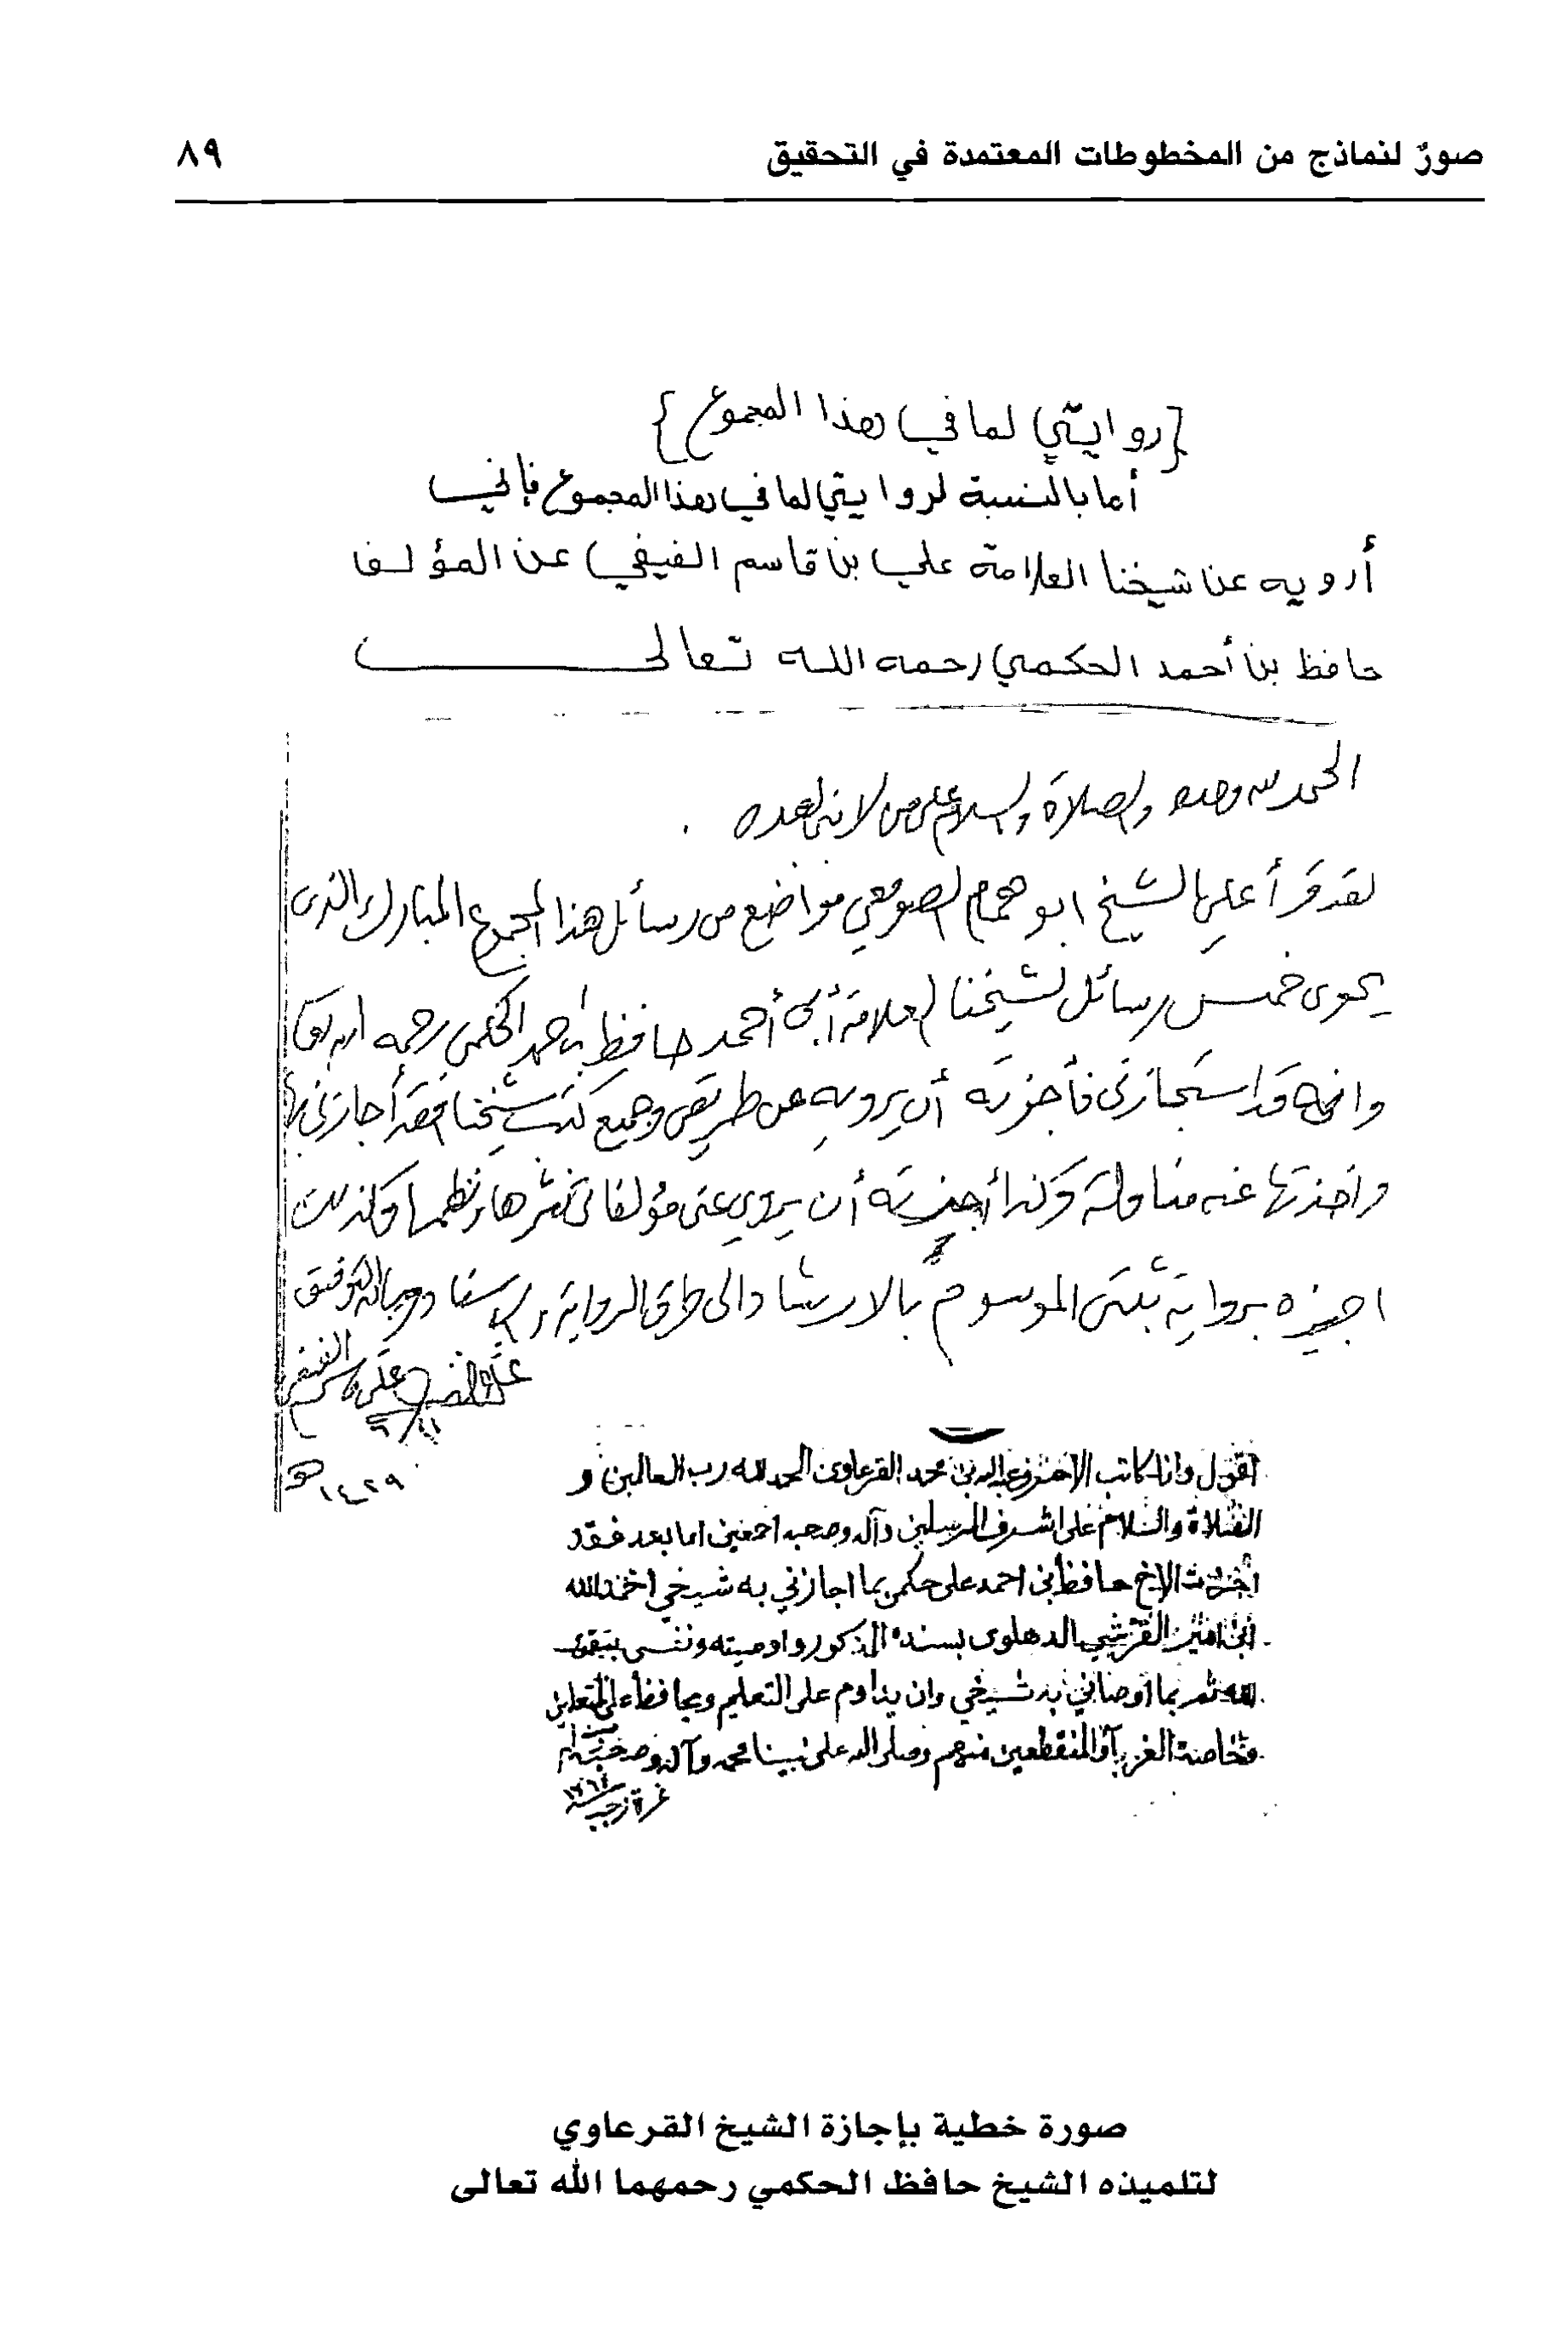 صورٌ لنماذج من المخطوطات المعتمدة في التحقيق
٨٩
{روايتي لما في هذا المجموع}
أما بالنسبة لروايتي لما في هذا المجموع فإني
أرويه عن شيخنا العلامة علي بن قاسم الفيفي عن المؤلف
حافظ بن أحمد الحكمي رحمه الله تعالى
الحمد لله وحده والصلاة والسلام على من لا نبي بعده .
لقد قرأ علي الشيخ ابو همام الصومعي مواضع من رسائل هذا المجموع المبارك والذي
يحوى خمس رسائل لشيخنا العلامة أبى أحمد حافظ بن احمد الحكمى رحمه الله
وانه قد استجازنى فأجزته أن يرويه عن طريقي وجميع كتب شيخنا فقد أجازنى بها
واخذتها عنه مناولة وكذا أجزته أن يروي عنى مؤلفاتى نثرها ونظمها وكذلك
اجيزه برواية ثبتى الموسوم بالارشاد الى طرق الرواية والاسناد وبالله التوفيق
علي قاسم الفيفي
١٤٢٩هـ
أقول وانا كاتب الاحرف عبدالله بن محمد القرعاوى الحمد لله رب العالمين و
الصلاة والسلام على اشرف المرسلين وآله وصحبه اجمعين اما بعد فقد
أجزت الاخ حافظ بن احمد على حكمى بما اجازني به شيخي احمد الله
ابن امير القرشي الدهلوى بسنده المذكور واوصيته ونفسى بتقوى
الله ثم بما أوصاني به شيخي وان يداوم على التعليم ويحافظ على المتعلمين
وخاصة الغرباء المنقطعين منهم وصلى الله على نبينا محمد وآله وصحبه وسلم
غرة رجب
صورة خطية بإجازة الشيخ القرعاوي
لتلميذه الشيخ حافظ الحكمي رحمهما الله تعالى